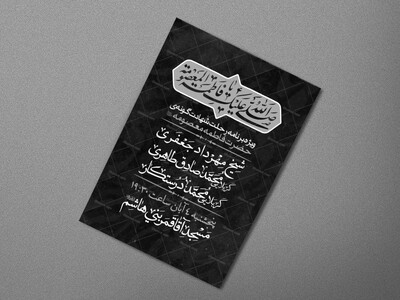 صلی الله علیک یا فاطمة المعصومة
ویژه برنامه رحلت شهادت گونه‌ی
حضرت فاطمه معصومه
شیخ مهرداد جعفری
کربلایی محمد صادق طاهری
کربلایی محمد درستکار
پنجشنبه ٤ آبان ساعت ١٩:٣٠
مسجد آقا قمر بنی هاشم